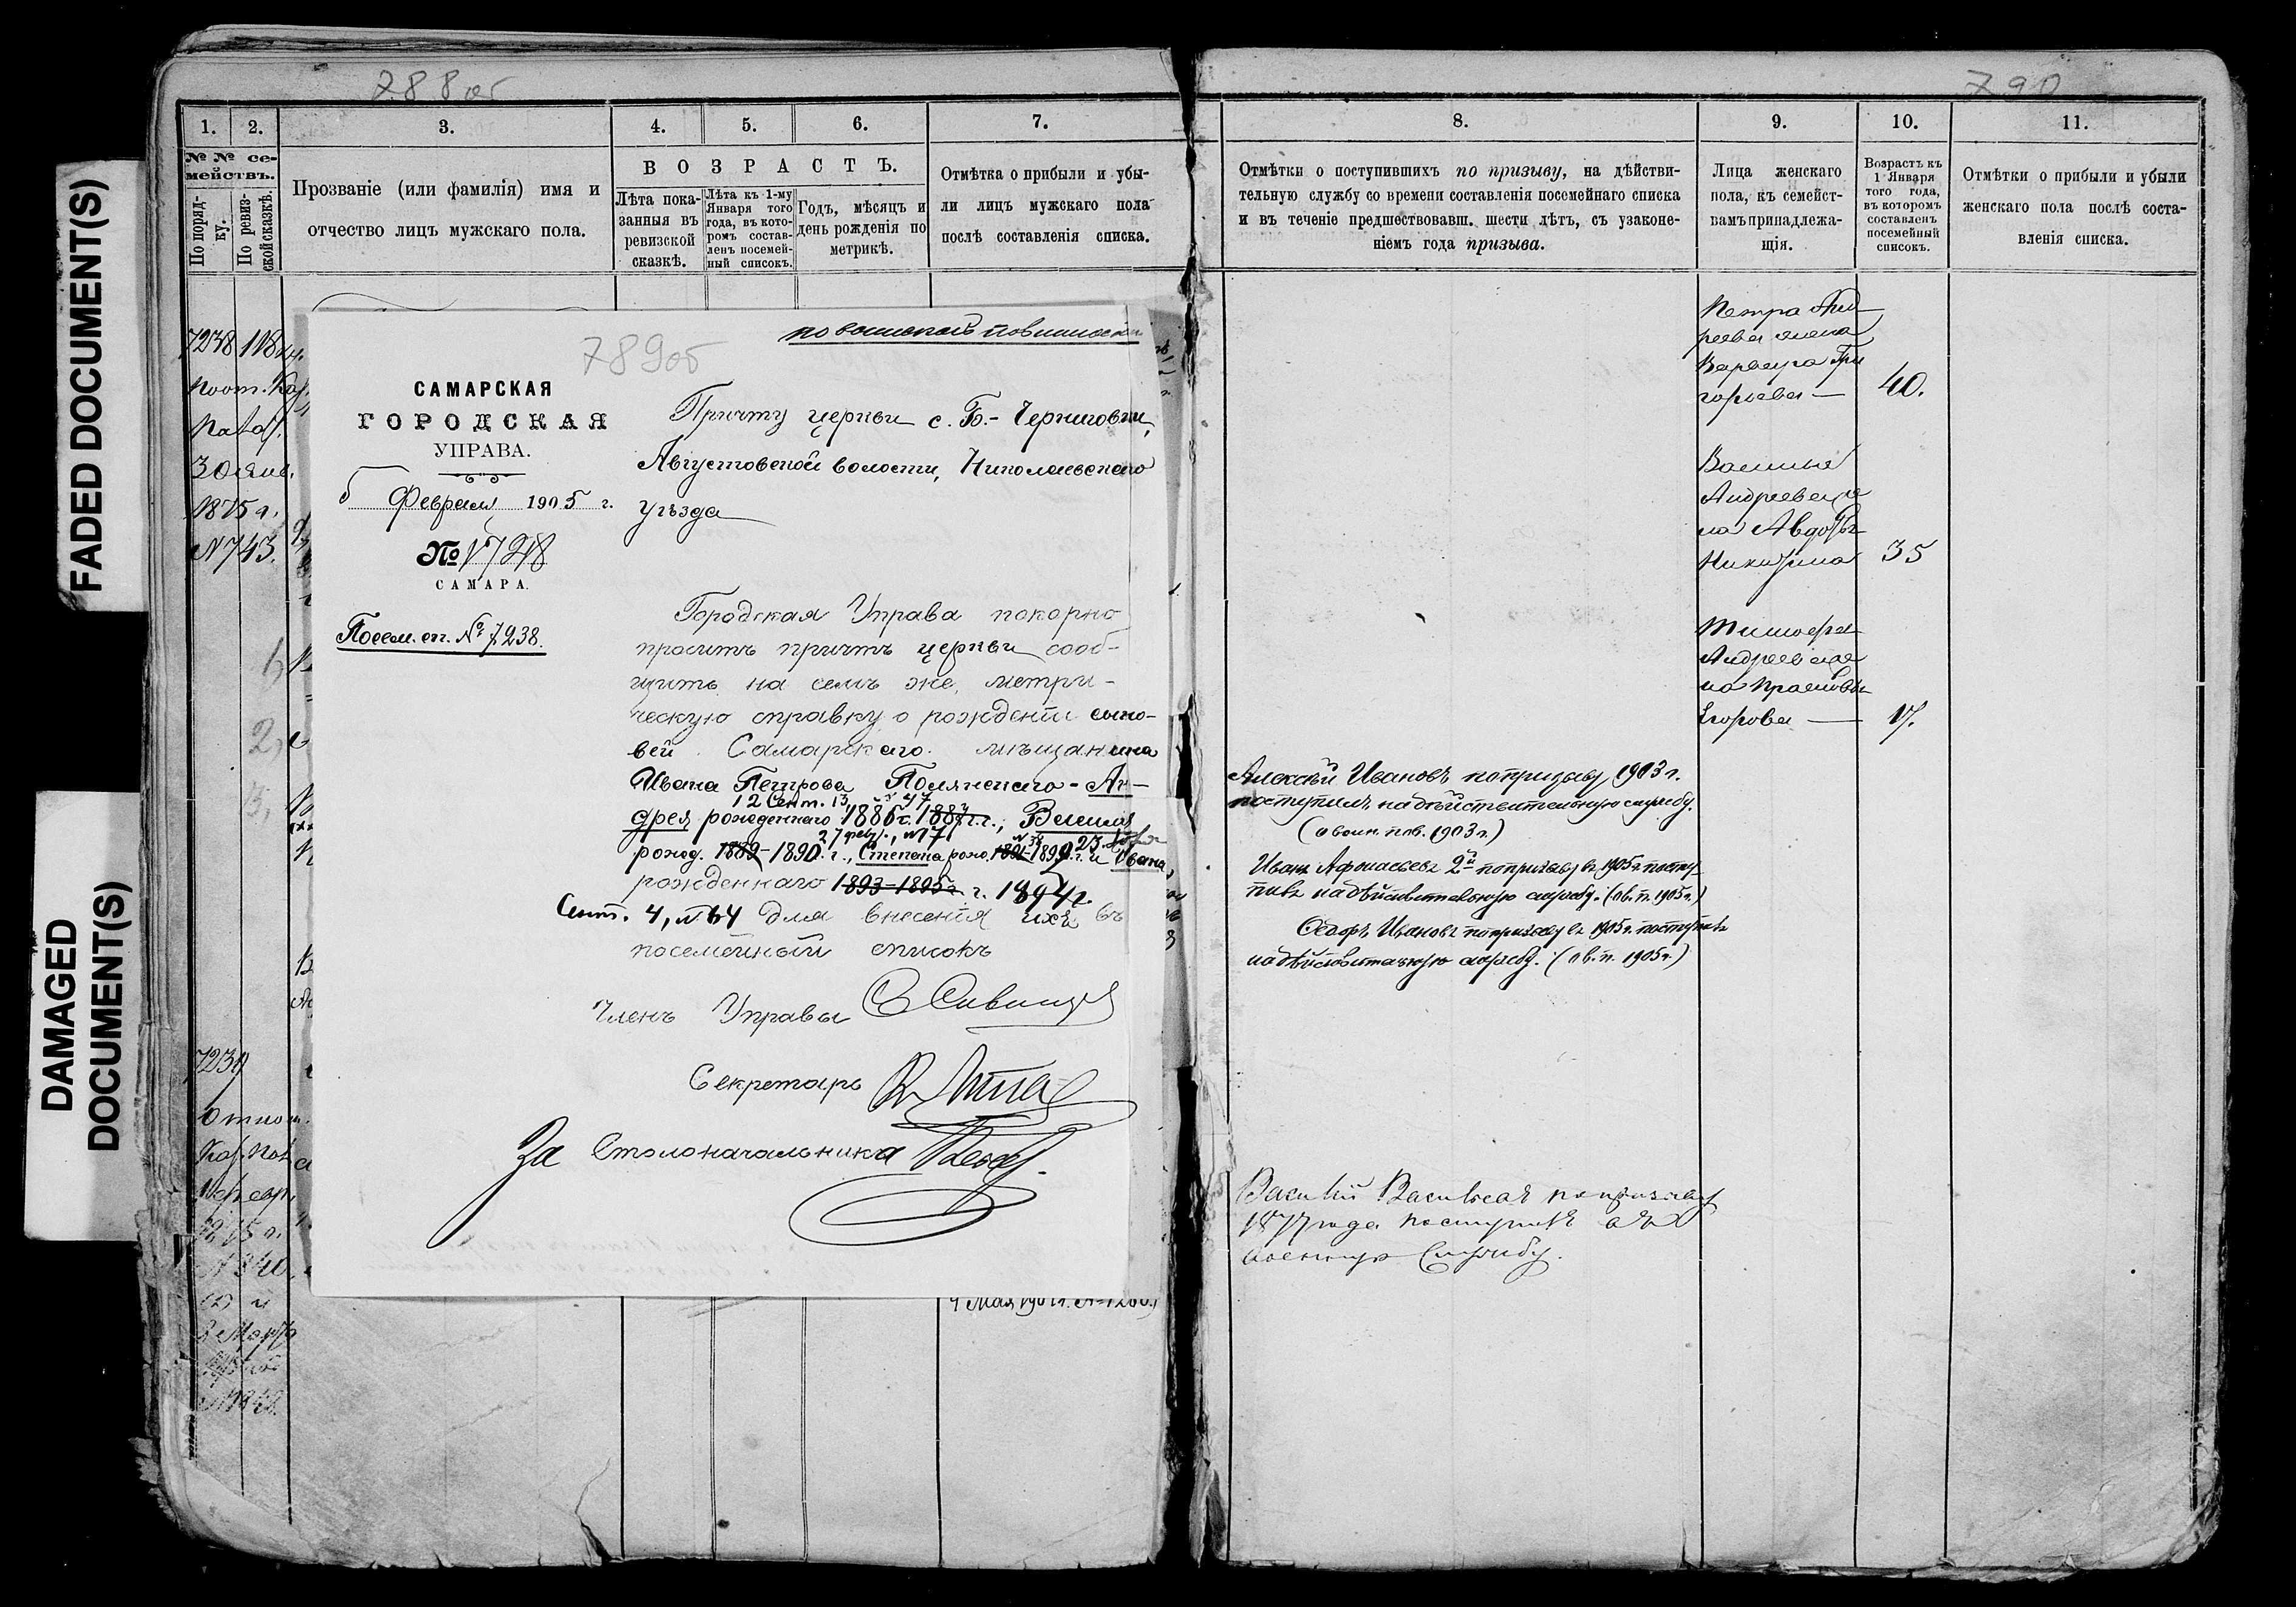 FADED DOCUMENT(S)
DAMAGED
DOCUMENT(S)
788 об
790
1.
2.
3.
4.
5.
6.
7.
8.
9.
10.
11.
№ № се-
мействъ.
По поряд-
ку.
По ревиз-
ской сказкѣ.
Прозваніе (или фамилія) имя и
отчество лицъ мужскаго пола.
ВОЗРАСТЪ.
Лѣта пока-
занныя въ
ревизской
сказкѣ.
Лѣта къ 1-му
Января того
года, въ кото-
ромъ состав-
ленъ посемей-
ный списокъ.
Годъ, мѣсяцъ и
день рожденія по
метрикѣ.
Отмѣтка о прибыли и убы-
ли лицъ мужскаго пола
послѣ составленія списка.
Отмѣтки о поступившихъ по призыву, на дѣйстви-
тельную службу со времени составленія посемейнаго списка
и въ теченіе предшествовавш. шести лѣтъ, съ узаконе-
ніемъ года призыва.
Лица женскаго
пола, къ семейст-
вамъ принадлежа-
щія.
Возрастъ къ
1 Января
того года,
въ которомъ
составленъ
посемейный
списокъ.
Отмѣтки о прибыли и убыли
женскаго пола послѣ соста-
вленія списка.
7238
Пост. Каз.
Палат.
30 Янв.
1875 г.
№ 743.
1,
2,
3,
7239
Отнош.
Каз. Пал.
1875 г.
№ 340.
по воинской повинности
789 об
САМАРСКАЯ
ГОРОДСКАЯ
УПРАВА.
Февраля 1905 г.
№ 1728
САМАРА.
Посем. сп. № 7238.
Причту церкви с. Б.-Черниговки,
Августовской волости, Николаевскаго
уѣзда
Городская Управа покорно
проситъ причтъ церкви сооб-
щить на семъ же, метри-
ческую справку о рожденіи сыно-
вей Самарскаго мѣщанина
Ивана Петрова Полянскаго - Ан-
12 Сент. 13, 47
дрея рожденнаго 1886 г. 1887 г.,
27 февр., № 17
рожд. 1889-1890 г., Степана рожд. 1891-1892 г. и Ивана
рожденнаго 1893-1895 г. 1894 г.
Сент. 4, № 64 для внесенія ихъ въ
посемейный списокъ
Членъ Управы
Секретарь
За Столоначальника
Петра Анд
реева жена
Варвара Гри
горьева — 40.
Василья
Андреева же
на Авдотья
Никитина 35
Тимофея
Андреева же
на Прасковья
Егорова — 17.
Алексѣй Ивановъ по призыву 1903 г.
поступилъ на дѣйствительную службу.
(о воин. пов. 1903 г.)
Иванъ Афанасьевъ 2й по призыву въ 1905 г. посту-
пилъ на дѣйствительную службу. (о в. п. 1905 г.)
Ѳедоръ Ивановъ по призыву въ 1905 г. поступилъ
на дѣйствительную службу. (о в. п. 1905 г.)
Василій Васильевъ по призыву
1877 года поступилъ на
военную службу.